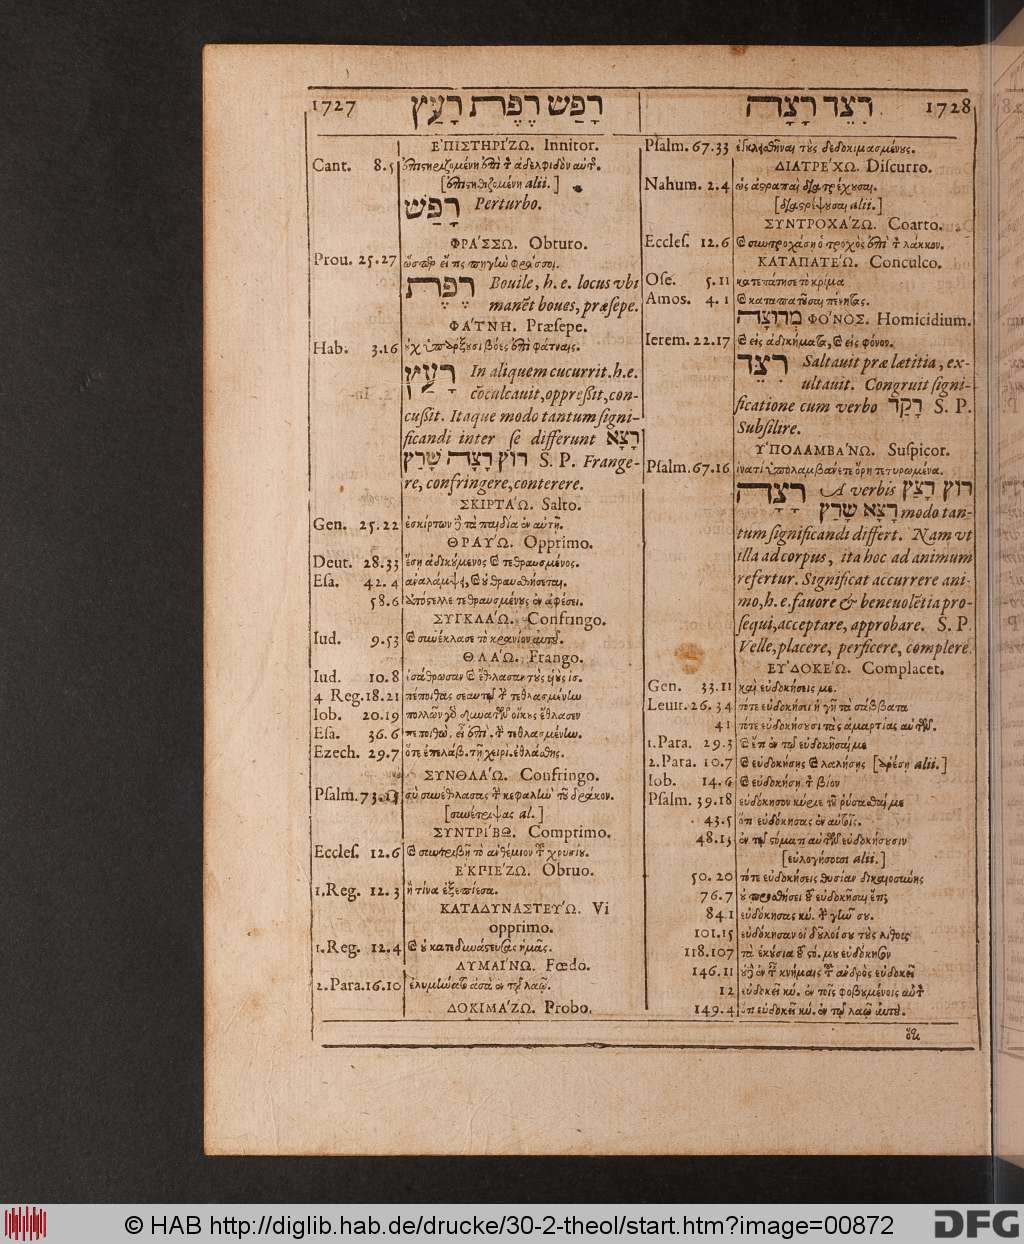 1727 רָפַשׂ רֶפֶת רָעַץ
ἘΠΙΣΤΗΡΊΖΩ. Innitor.
Cant. 8.5 ἐπιστηριζομένη ἐπὶ τ̃ ἀδελφιδὸν αὐτ̃.
[ἐπιστηθιζομένη alii.]
רָפַשׂ Perturbo.
ΦΡΆΣΣΩ. Obturo.
Prou. 25.27 ὥσπερ εἴ τις πηγὴν φράσσοι.
רֶפֶת Bouile, h. e. locus vbi
manẽt boues, præſepe.
ΦΆΤΝΗ. Præſepe.
Hab. 3.16 οὐχ ὑπάρξουσι βόες ἐπὶ φάτναις.
רָעַץ In aliquem cucurrit. h. e.
cõculcauit, oppreſsit, con-
cuſsit. Itaque modo tantum ſigni-
ficandi inter ſe differunt רָצָא
רוץ רָצָה שָׁרַץ S. P. Frange-
re, confringere, conterere.
ΣΚΙΡΤΆΩ. Salto.
Gen. 25.22 ἐσκίρτων δὲ τὰ παιδία ἐν αὐτῇ.
ΘΡΑΎΩ. Opprimo.
Deut. 28.33 ἔσῃ ἀδικούμενος καὶ τεθραυσμένος.
Eſa. 42.4 ἀναλάμψει, καὶ οὐ θραυσθήσεται.
58.6 ἀπόστελλε τεθραυσμένους ἐν ἀφέσει.
ΣΥΓΚΛΆΩ. Confringo.
Iud. 9.53 καὶ συνέκλασε τὸ κρανίον αὐτοῦ.
ΘΛΆΩ. Frango.
Iud. 10.8 ἐσάθρωσαν καὶ ἔθλασαν τοὺς υἱοὺς ἰσ.
4 Reg. 18.21 πέποιθας σεαυτῷ τ̃ τεθλασμένην
Iob. 20.19 πολλῶν γὰρ ἀδυνάτων οἴκους ἔθλασεν
Eſa. 36.6 πεποιθὼς εἶ ἐπὶ. τ̃ τεθλασμένην.
Ezech. 29.7 ὅτε ἐπελάβ. τῇ χειρὶ. ἐθλάσθης.
ΣΥΝΘΛΆΩ. Confringo.
Pſalm. 73.13 σὺ συνέθλασας τ̃ κεφαλὴν τοῦ δράκον.
[συνέτριψας al.]
ΣΥΝΤΡΊΒΩ. Comprimo.
Eccleſ. 12.6 καὶ συντριβῇ τὸ ἀνθέμιον τ̃ χρυσίου.
ἘΚΠΙΈΖΩ. Obruo.
1. Reg. 12.3 ἢ τίνα ἐξεπίεσα.
ΚΑΤΑΔΥΝΑΣΤΕΎΩ. Vi
opprimo.
1. Reg. 12.4 καὶ οὐ κατεδυνάστευσας ἡμᾶς.
ΛΥΜΑΊΝΩ. Fœdo.
2. Para. 16.10 ἐλυμήνατο ἀσὰ ἐν τῷ λαῷ.
ΔΟΚΙΜΆΖΩ. Probo.
רִצֵּד רָצָה 1728
Pſalm. 67.33 ἐκκλεισθῆναι τοὺς δεδοκιμασμένους.
ΔΙΑΤΡΈΧΩ. Diſcurro.
Nahum. 2.4 ὡς ἀστραπαὶ διατρέχουσαι.
[διαστρέψουσαι alii.]
ΣΥΝΤΡΟΧΆΖΩ. Coarto.
Eccleſ. 12.6 καὶ συντροχάσῃ ὁ τροχὸς ἐπὶ τ̃ λάκκον.
ΚΑΤΑΠΑΤΈΩ. Conculco.
Oſe. 5.11 κατεπάτησε τὸ κρίμα
Amos. 4.1 καὶ καταπατοῦσαι πένητας.
מְרוּצָה ΦΌΝΟΣ. Homicidium.
Ierem. 22.17 καὶ εἰς ἀδικήματα, καὶ εἰς φόνον.
רִצֵּד Saltauit præ lætitia, ex-
ultauit. Congruit ſigni-
ficatione cum verbo רָקַד S. P.
Subſilire.
ὙΠΟΛΑΜΒΆΝΩ. Suſpicor.
Pſalm. 67.16 ἱνατί ὑπολαμβάνετε ὄρη τετυρωμένα.
רָצָה A verbis רוץ רָצַץ
רָצָא שָׁרַץ modo tan-
tum ſignificandi differt. Nam vt
illa ad corpus, ita hoc ad animum
refertur. Significat accurrere ani-
mo, h. e. fauore & beneuolẽtia pro-
ſequi, acceptare, approbare. S. P.
Velle, placere, perficere, complere.
ΕΥ̓ΔΟΚΈΩ. Complacet.
Gen. 33.11 καὶ εὐδοκήσεις με.
Leuit. 26.34 τότε εὐδοκήσει ἡ γῆ τὰ σάββατα
41 τότε εὐδοκήσουσι τὰς ἁμαρτίας αὐτῶν.
1. Para. 29.3 καὶ ἔτι ἐν τῷ εὐδοκῆσαί με
2. Para. 10.7 καὶ εὐδοκήσῃς καὶ λαλήσῃς [ἀρέσῃ alii.]
Iob. 14.6 καὶ εὐδοκήσῃ τ̃ βίον
Pſalm. 39.18 εὐδόκησον κύριε τοῦ ῥύσασθαί με
43.5 ὅτι εὐδόκησας ἐν αὐτοῖς.
48.13 ἐν τῷ στόματι αὐτῶν εὐδοκήσουσιν
[εὐλογήσουσι alii.]
50.20 τότε εὐδοκήσεις θυσίαν δικαιοσύνης
76.7 οὐ προσθήσει τοῦ εὐδοκῆσαι ἔτι;
84.1 εὐδόκησας κύ. τ̃ γῆν σου.
101.15 εὐδόκησαν οἱ δοῦλοί σου τοὺς λίθους
118.107 τὰ ἑκούσια τοῦ στό. μου εὐδόκησον
146.11 οὐδὲ ἐν τ̃ κνήμαις τ̃ ἀνδρὸς εὐδοκεῖ
12 εὐδοκεῖ κύ. ἐν τοῖς φοβουμένοις αὐτ̃
149.4 ὅτι εὐδοκεῖ κύ. ἐν τῷ λαῷ αὐτοῦ.
οὐκ
© HAB http://diglib.hab.de/drucke/30-2-theol/start.htm?image=00872
DFG